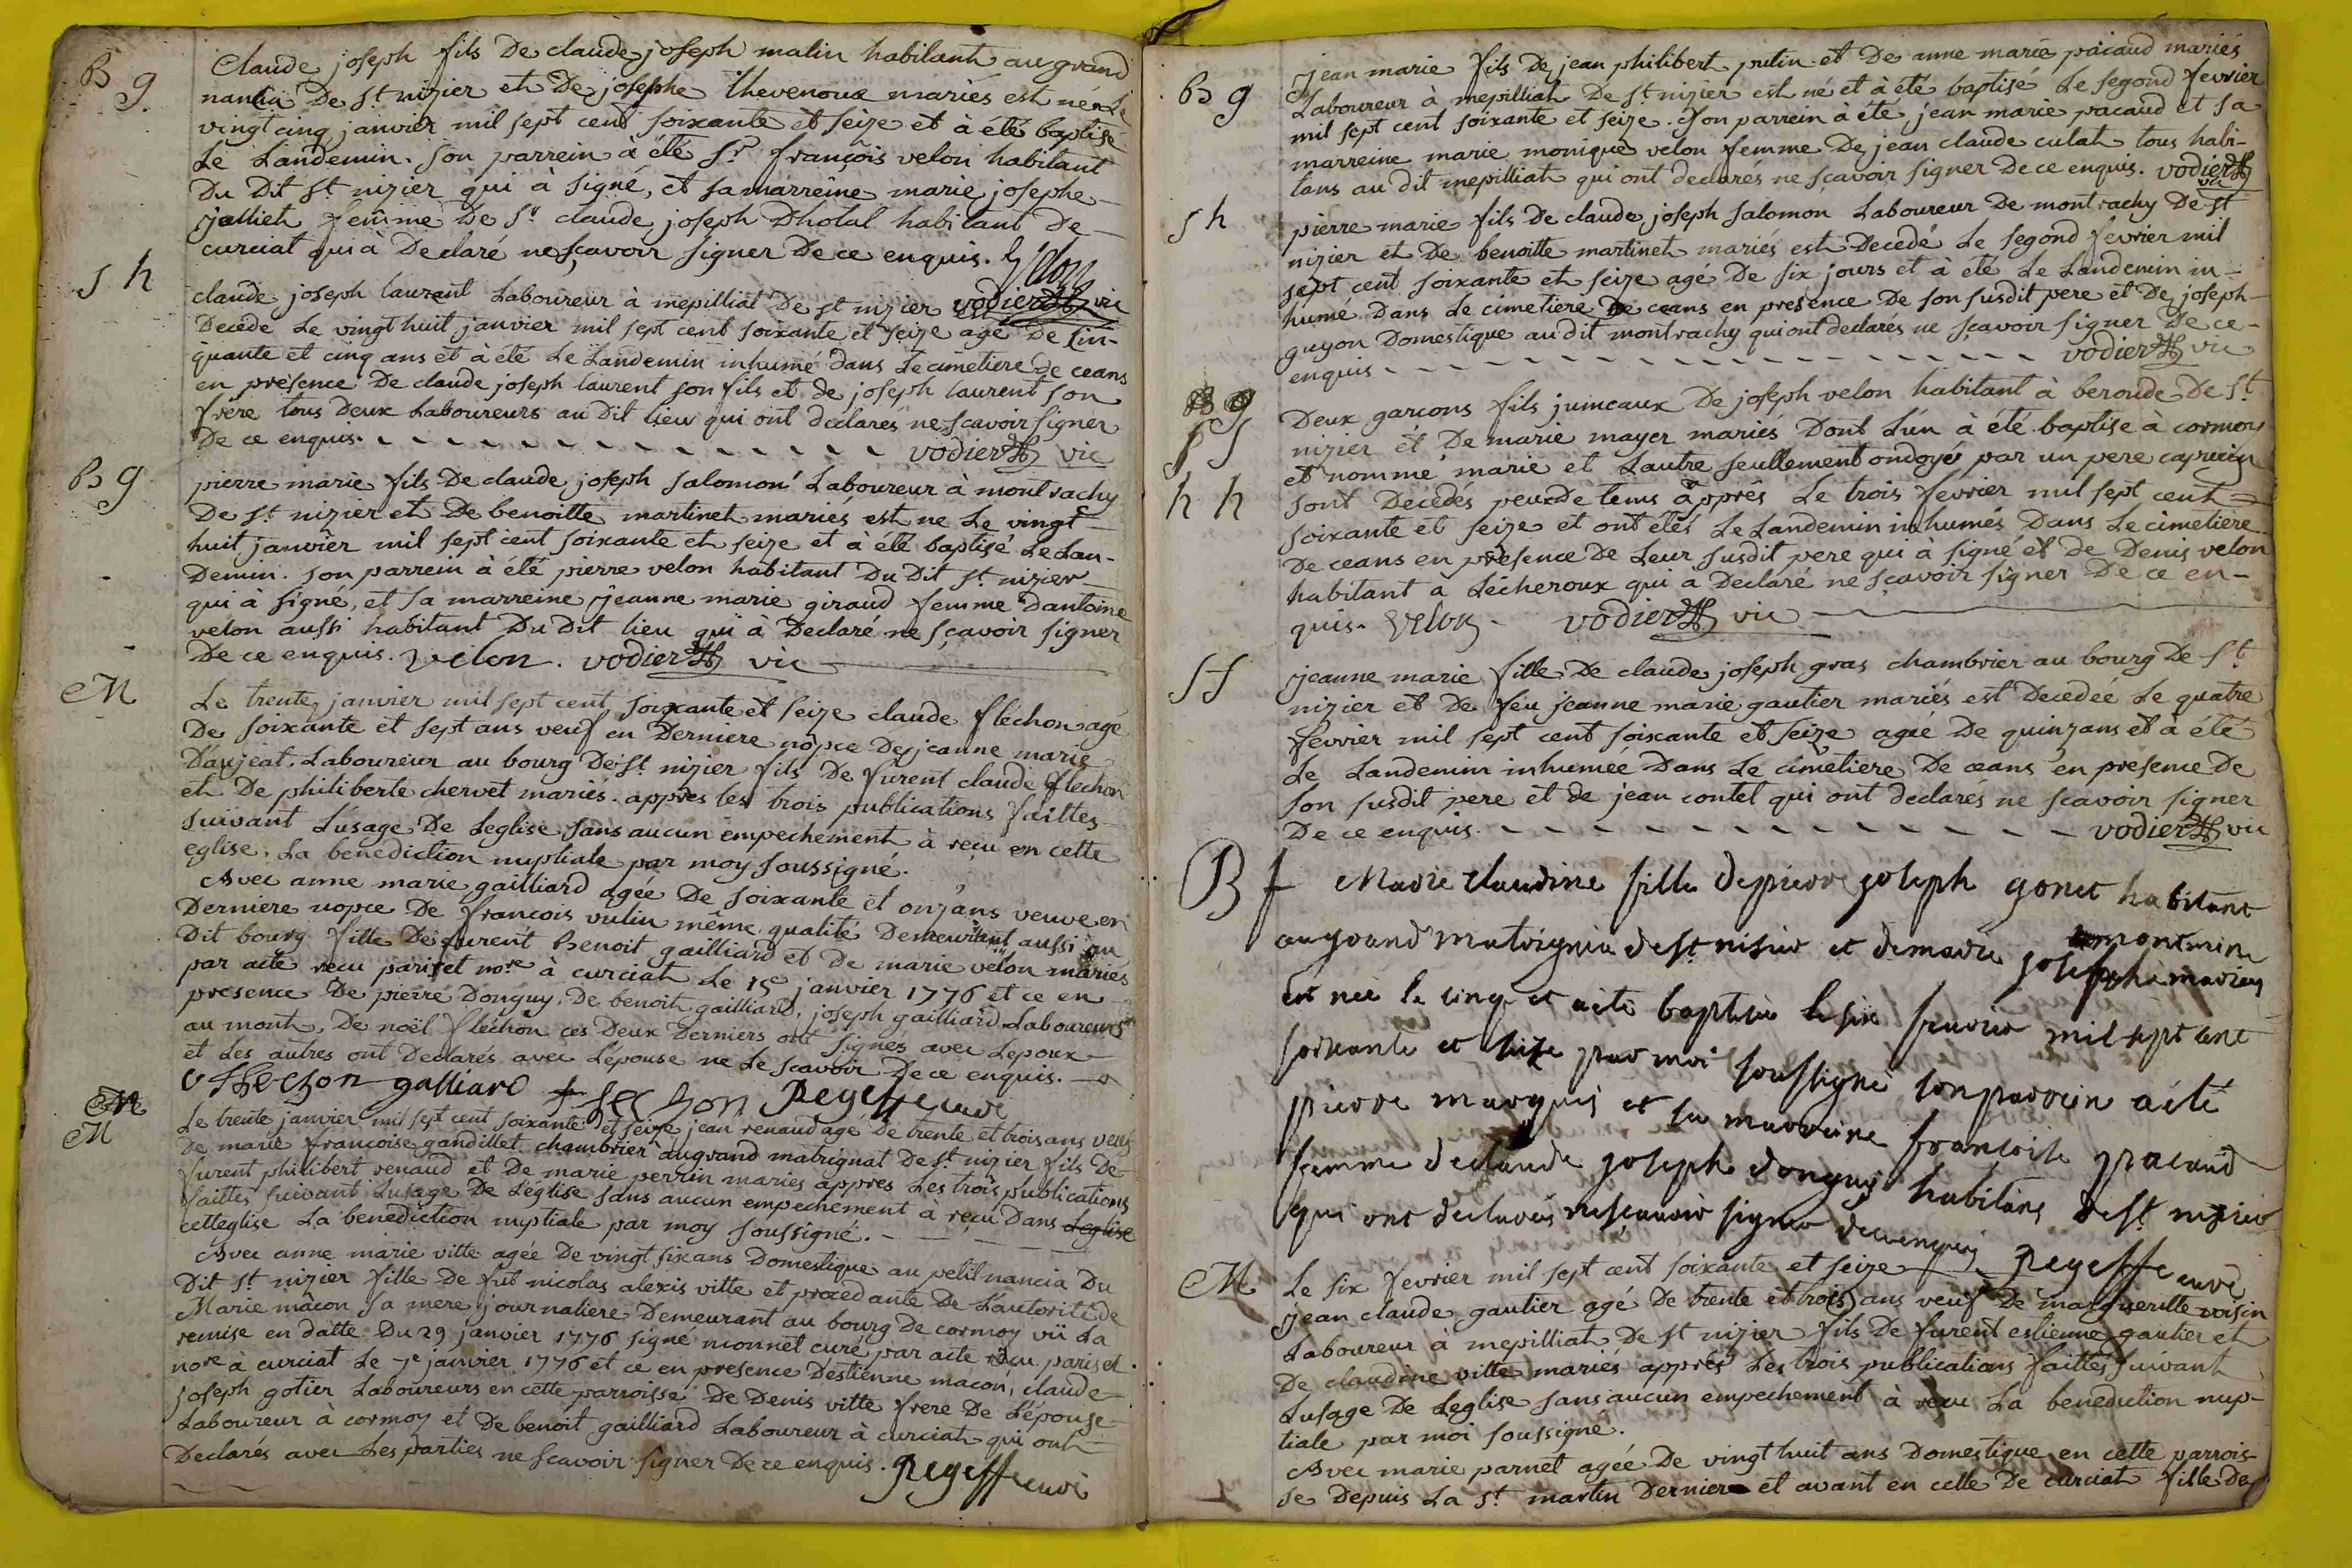 B g
Claude joseph fils De claude joseph malin habitant au grand
nantia De St nizier et De josephe thevenoux mariés est né Le
vingt cinq janvier mil sept cent soixante et seize et à été baptisé
Le Landemin. son parrein a été Sr françois velon habitant
Du Dit St nizier qui à signé, et sa marreine marie josephe
jalliet femme De Sr claude joseph Dhotal habitant De
curciat qui à Declaré ne sçavoir signer De ce enquis.
S h
claude joseph laurent Laboureur à mepilliat De st nizier est vodier vic
Decedé Le vingt huit janvier mil sept cent soixante et seize agé De sin-
quante et cinq ans et à été Le Landemin inhumé Dans Le cimetiere de ceans
en présence De claude joseph laurent son fils et de joseph laurent son
frere tous Deux Laboureurs au Dit Lieu qui ont declarés ne sçavoir signer
De ce enquis. vodier vic
B g
pierre marie fils De claude joseph salomon Laboureur à montrachy
De St nizier et De benoitte martinet maries est ne Le vingt
huit janvier mil sept cent soixante et seize et à été baptisé Le Lan-
Demin. son parrein à été pierre velon habitant Du Dit St nizier
qui à signé, et sa marreine jeanne marie giraud femme Dantoine
velon aussi habitant Du Dit lieu qui à Declaré ne sçavoir signer
De ce enquis. velon. vodier vic
M
Le trente janvier mil sept cent soixante et seize claude flèchon agé
De soixante et sept ans veuf en Derniere nopce De jeanne marie
Daujeat. Laboureur au bourg De St nizier fils De furent claude fléchon
et De philiberte chervet mariés. apprès les trois publications faittes
suivant L'usage De Leglise sans aucun empechement à reçu en cette
eglise. La benediction nuptiale par moy soussigné.
Avec anne marie gailliard agée De soixante et onz'ans veuve en
Derniere nopce De francois vulin même qualité Demeurant aussi au
Dit bourg fille De furent Benoit gailliard et De marie velon mariés
par acte recu pariset nore à curciat Le 15e janvier 1776 et ce en
presence De pierre Donguy, De benoit gailliard, joseph gailliard Laboureurs
au mont, De noël fléchon ces Deux Derniers ont signés avec Lepoux
et Les autres ont Declarés avec L'épouse ne Le sçavoir De ce enquis.
galliard flechon Regeffe curé
M
M
Le trente janvier mil sept cent soixante et seize jean renaud agé De trente et trois ans veuf
De marie francoise gandillet chambrier au grand matrignat De St nizier fils De
furent philibert renaud et De marie perrin mariés appres Les trois publications
faittes suivant L'usage De L'église sans aucun empechement à reçu Dans Leglise
cetteglise La benediction nuptiale par moy soussigné.
Avec anne marie vitte agée De vingt six ans Domestique au petit nancia Du
Dit St nizier fille De fut nicolas alexis vitte et procedante De L'autorité de
Marie mâcon sa mere journaliere Demeurant au bourg De cormoy vû La
remise en datte Du 29 janvier 1776 signé monnet curé par acte reçu pariset
nore à curciat Le 7e janvier 1776 et ce en presence Destienne macon, claude
joseph gotier Laboureurs en cette parroisse De Denis vitte frere De L'épouse
Laboureur à cormoy et De benoit gailliard Laboureur à curciat qui ont
Declarés avec Les parties ne sçavoir signer De ce enquis. Regeffe curé
B g
jean marie fils De jean philibert putin et De anne marie pacaud mariés
Laboureur à mepilliat De St nizier est né et à été baptisé Le segond fevrier
mil sept cent soixante et seize. son parrein à été jean marie pacaud et sa
marreine marie monique velon femme De jean claude culat tous habi-
tans au dit mepilliat qui ont declarés ne sçavoir signer De ce enquis. vodier vic
S h
pierre marie fils De claude joseph salomon Laboureur De montrachy De St
nizier et De benoitte martinet mariés est Decedé Le segond fevrier mil
sept cent soixante et seize age De six jours et à été Le Landemin in-
humé Dans Le cimetiere De ceans en presence De son susdit pere et De joseph
guyon Domestique au dit montrachy qui ont declarés ne sçavoir signer De ce
enquis vodier vic
B g
S
h h
Deux garcons fils jumeaux De joseph velon habitant à beronde De St
nizier et De marie mayer mariés Dont L'un à été baptise à cormoy
et nommé marie et Lautre seullement ondoyé par un pere capucin
sont Decedés peu de tems apprés Le trois fevrier mil sept cent
soixante et seize et ont étés Le Landemin inhumés Dans Le cimetiere
De ceans en présence De Leur susdit pere qui à signé et de Denis velon
habitant a Lécheroux qui a Declaré ne sçavoir signer De ce en-
quis. velon. vodier vic
S f
jeanne marie fille De claude joseph gras chambrier au bourg De St
nizier et De feu jeanne marie gautier mariés est Decedeé Le quatre
fevrier mil sept cent soixante et seize ageé De quinz ans et à été
Le Landemin inhumée Dans Le cimetiere De ceans en présence De
son susdit pere et de jean contet qui ont declarés ne sçavoir signer
De ce enquis. vodier vic
B f
Marie claudine fille de pierre joseph gonet habitant
au grand matrignia de St nisier et de marie josephe montmin mariés
est née le cinq et a été baptisée le six fevrier mil sept cent
soixante et seize par moi soussigné son parrein a été
pierre marquis et sa marreine francoise pacaud
femme de claude joseph donguy habitans de St nizier
qui ont declarés ne scavoir signer de ce enquis Regeffe curé
M
Le six fevrier mil sept cent soixante et seize
jean claude gautier agé De trente et trois ans veuf De margueritte voisin
Laboureur à mepilliat De St nizier fils De furent estienne gautier et
De claudine vitte mariés apprés Les trois publications faittes suivant
Lusage De Leglise sans aucun empechement à reçu La benediction nup-
tiale par moi soussigné.
Avec marie parnet agée De vingt huit ans Domestique en cette parrois-
se Depuis La St martin Derniere et avant en celle De curciat fille De